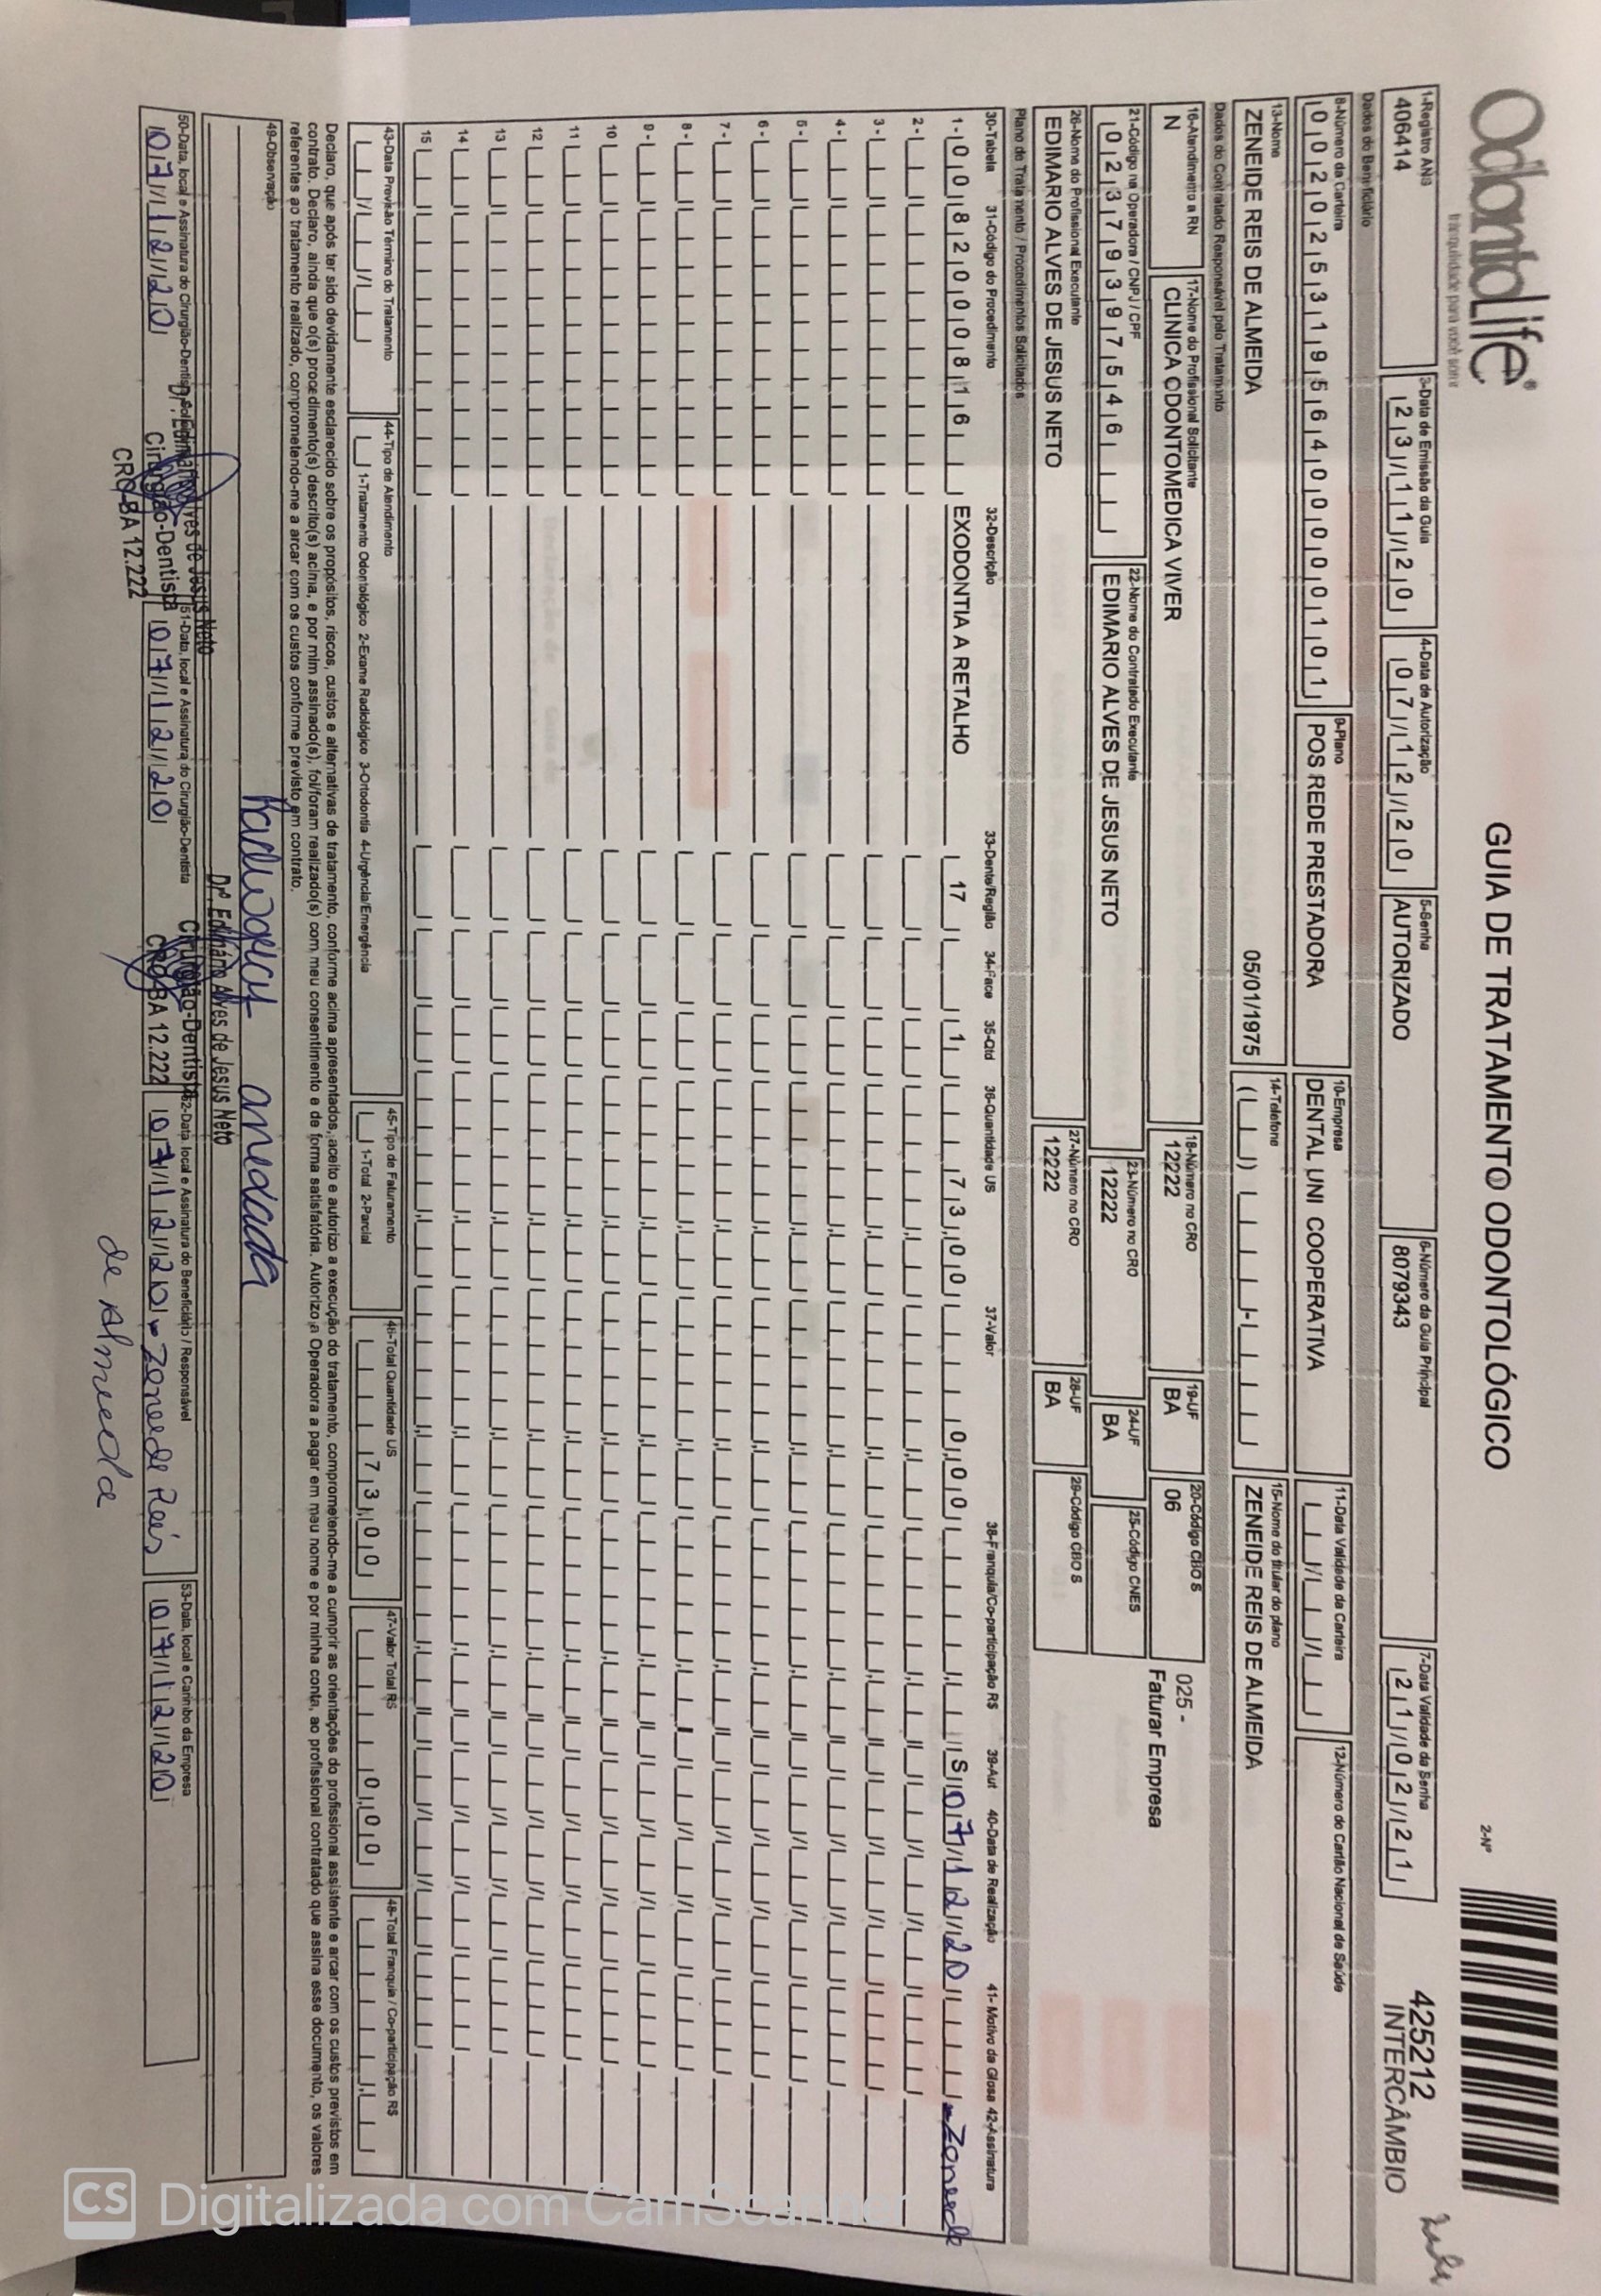 OdontoLife®
tranquilidade para você sorrir
GUIA DE TRATAMENTO ODONTOLÓGICO
2-Nº
425212
INTERCÂMBIO
1-Registro ANS
406414
3-Data de Emissão da Guia
23/11/20
4-Data de Autorização
07/12/20
5-Senha
AUTORIZADO
6-Número da Guia Principal
8079343
7-Data Validade da Senha
21/02/21
Dados do Beneficiário
8-Número da Carteira
00202531956400000101
9-Plano
POS REDE PRESTADORA
10-Empresa
DENTAL UNI COOPERATIVA
11-Data Validade da Carteira
12-Número do Cartão Nacional de Saúde
13-Nome
ZENEIDE REIS DE ALMEIDA
05/01/1975
14-Telefone
15-Nome do titular do plano
ZENEIDE REIS DE ALMEIDA
Dados do Contratado Responsável pelo Tratamento
16-Atendimento a RN
N
17-Nome do Profissional Solicitante
CLINICA ODONTOMEDICA VIVER
18-Número no CRO
12222
19-UF
BA
20-Código CBO S
06
025 -
Faturar Empresa
21-Código na Operadora / CNPJ / CPF
02379397546
22-Nome do Contratado Executante
EDIMARIO ALVES DE JESUS NETO
23-Número no CRO
12222
24-UF
BA
25-Código CNES
26-Nome do Profissional Executante
EDIMARIO ALVES DE JESUS NETO
27-Número no CRO
12222
28-UF
BA
29-Código CBO S
Plano do Tratamento / Procedimentos Solicitados
30-Tabela 31-Código do Procedimento 32-Descrição 33-Dente/Região 34-Face 35-Qtd 36-Quantidade US 37-Valor 38-Franquia/Co-participação R$ 39-Aut 40-Data de Realização 41- Motivo da Glosa 42-Assinatura
1- 00 82000816 EXODONTIA A RETALHO 17 1 73,00 0,00 S 07/12/20 Zeneide
2-
3-
4-
5-
6-
7-
8-
9-
10
11
12
13
14
15
43-Data Previsão Término do Tratamento
44-Tipo de Atendimento
1-Tratamento Odontológico 2-Exame Radiológico 3-Ortodontia 4-Urgência/Emergência
45-Tipo de Faturamento
1-Total 2-Parcial
46-Total Quantidade US
73,00
47-Valor Total R$
0,00
48-Total Franquia / Co-participação R$
Declaro, que após ter sido devidamente esclarecido sobre os propósitos, riscos, custos e alternativas de tratamento, conforme acima apresentados, aceito e autorizo a execução do tratamento, comprometendo-me a cumprir as orientações do profissional assistente e arcar com os custos previstos em
contrato. Declaro, ainda que o(s) procedimento(s) descrito(s) acima, e por mim assinado(s), foi/foram realizado(s) com meu consentimento e de forma satisfatória. Autorizo a Operadora a pagar em meu nome e por minha conta, ao profissional contratado que assina esse documento, os valores
referentes ao tratamento realizado, comprometendo-me a arcar com os custos conforme previsto em contrato.
49-Observação
50-Data, local e Assinatura do Cirurgião-Dentista Solicitante
07/12/20
Drº. Edimário Alves de Jesus Neto
Cirurgião-Dentista
CRO-BA 12.222
51-Data, local e Assinatura do Cirurgião-Dentista
07/12/20
Drº. Edimário Alves de Jesus Neto
Cirurgião-Dentista
CRO-BA 12.222
52-Data, local e Assinatura do Beneficiário / Responsável
07/12/20 Zeneide Reis
de Almeida
53-Data, local e Carimbo da Empresa
07/12/20
CS Digitalizada com CamScanner